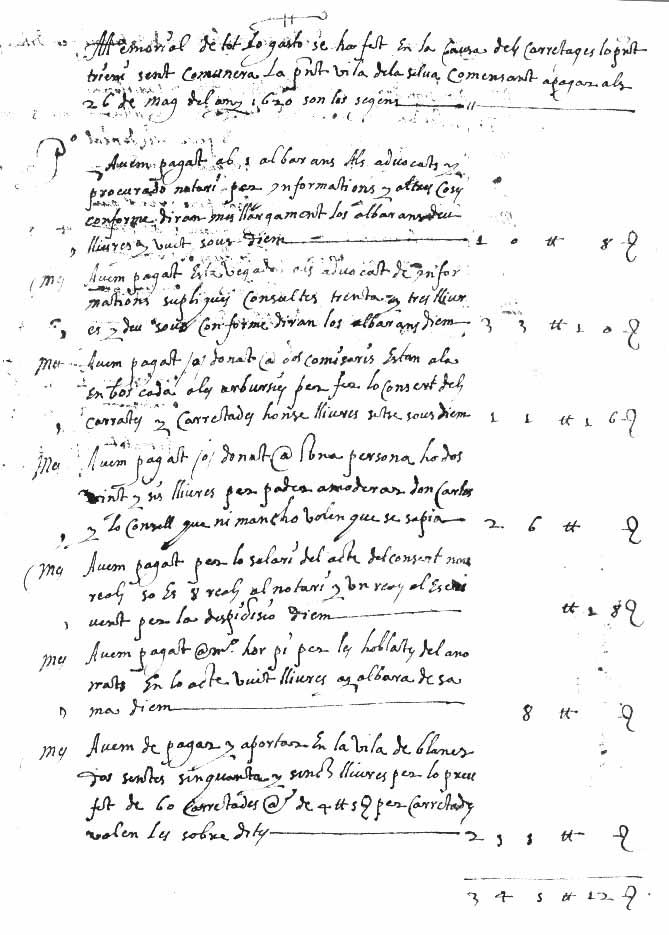 Memorial de tot lo gasto se ha fet En la Causa dels Carretages lo pnt
trieni sent Comunera La pnt vila dela selva Comensant apagar als
26 de mag del any 1620 son los seguens
Po
Avem pagat ab 1 albarans Als advocats y
procurado notari per ynformations y altres Cosy
conforme diran mes llargament los albarans deu
lliures y vuit sous diem 1 0 tt 8 ₰
Mes Avem pagat Esta vegada als advocat de ynfor
mations supliques Consultes trenta y tres lliur
es y deu sous Conforme diran los albarans diem 3 3 tt 1 0 ₰
Mes Avem pagat donat @ dos Comisaris Estan ala
En per fer lo Consert dels
Carrates y Carretades honse lliures setse sous diem 1 1 tt 1 6 ₰
Mes Avem pagat donat @ Una persona ho dos
vint y sis lliures per poder amoderar don Carlos
y lo Consell que ni mancho volen que se sapia 2 6 tt ₰
Mes Avem pagat per lo selari del acte del consert nou
reals so Es 8 reals al notari y Un real al Escri
vent per la despidisio diem tt 1 8 ₰
Mes Avem pagat @ mo. hor pi per les hoblats del ano
rats En lo acte vuit lliures ay albara de sa
ma diem 8 tt ₰
Mes Avem de pagar y aportar En la vila de blanes
dos sentes sinquanta y sinch lliures per lo preu
fet de 60 Carretades @ de 4 tt 5 ₰ per Carretady
volen les sobre dits 2 5 5 tt ₰
3 4 5 tt 12 ₰